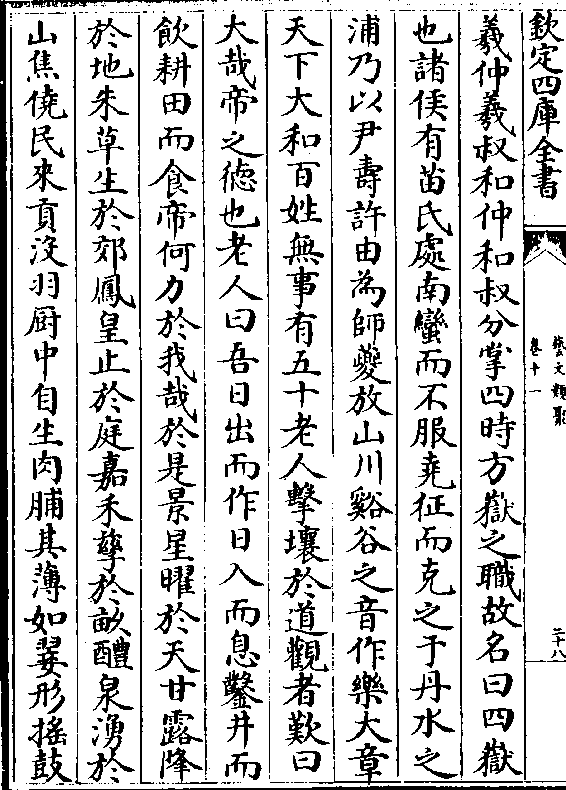 欽定四庫全書
藝文類聚
卷十一
二十八
羲仲羲叔和仲和叔分掌四時方嶽之職故名曰四嶽
也諸侯有苗氏處南蠻而不服堯征而克之于丹水之
浦乃以尹壽許由為師夔放山川谿谷之音作樂大章
天下大和百姓無事有五十老人擊壤於道觀者歎曰
大哉帝之徳也老人曰吾日出而作日入而息鑿井而
飲耕田而食帝何力於我哉於是景星曜於天甘露降
於地朱草生於郊鳳皇止於庭嘉禾孳於畝醴泉湧於
山焦僥民來貢沒羽厨中自生肉脯其薄如翣形搖鼓